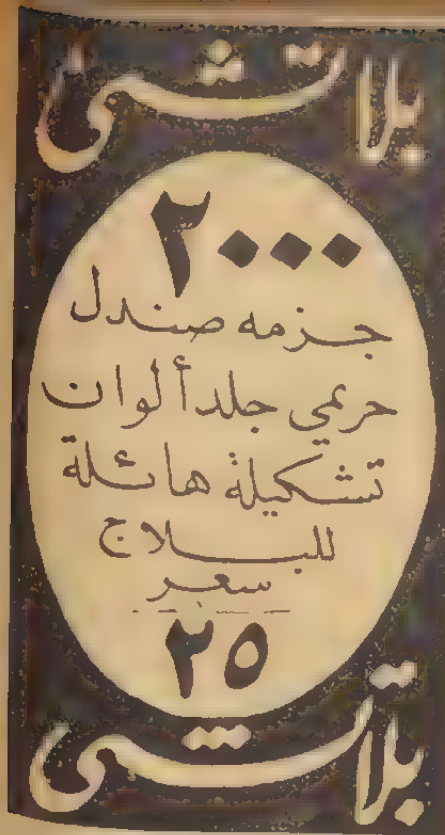 بلاتشى
٢٠٠٠
جزمه صندل
حريمي جلد ألوان
تشكيلة هائلة
للبلاج
سعر
٢٥
بلاتشى